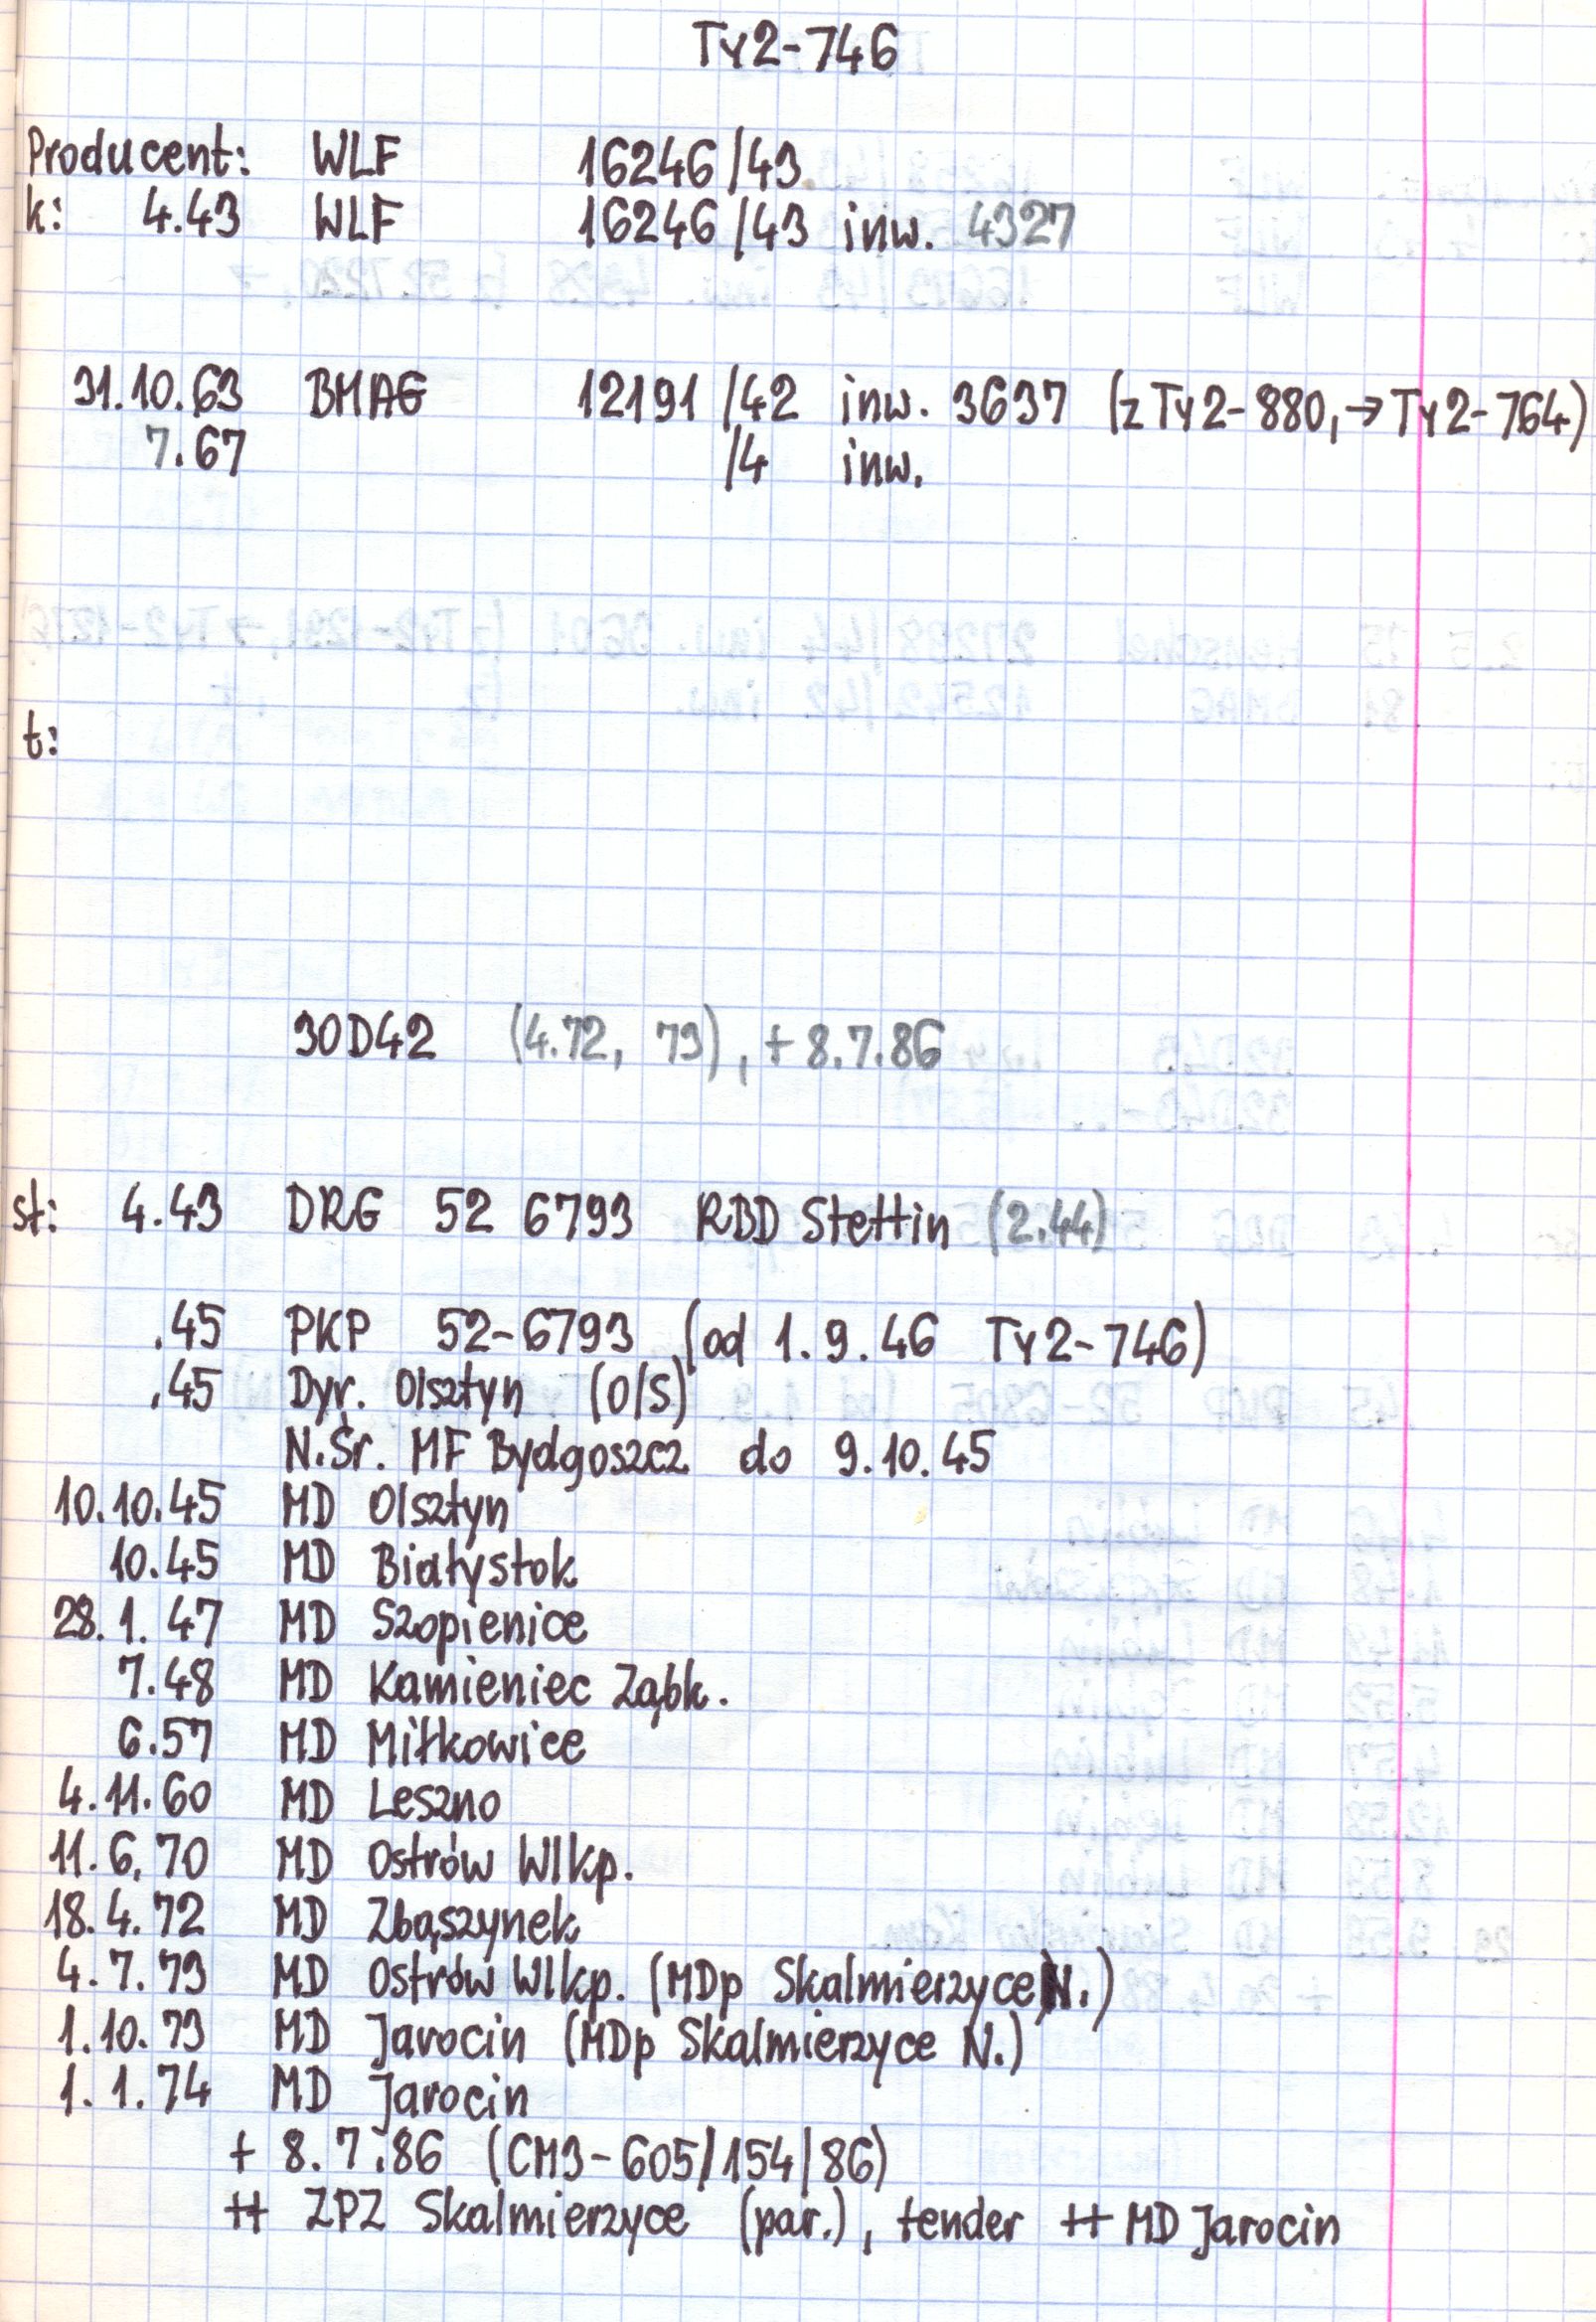 Ty2-746
Producent: WLF 16246/43
k: 4.43 WLF 16246/43 inw. 4327
31.10.63 BMAG 12191/42 inw. 3637 (z Ty2-880, → Ty2-764)
7.67 /4 inw.
t:
30D42 (4.72, 73), + 8.7.86
st: 4.43 DRG 52 6793 RBD Stettin (2.44)
.45 PKP 52-6793 (od 1.9.46 Ty2-746)
.45 Dyr. Olsztyn (O/S)
N.Śr. MF Bydgoszcz do 9.10.45
10.10.45 MD Olsztyn
10.45 MD Białystok
28.1.47 MD Szopienice
7.48 MD Kamieniec Ząbk.
6.57 MD Miłkowice
4.11.60 MD Leszno
11.6.70 MD Ostrów Wlkp.
18.4.72 MD Zbąszynek
4.7.73 MD Ostrów Wlkp. (MDp Skalmierzyce N.)
1.10.73 MD Jarocin (MDp Skalmierzyce N.)
1.1.74 MD Jarocin
+ 8.7.86 (CM3-605/154/86)
++ ZPZ Skalmierzyce (par.), tender ++ MD Jarocin